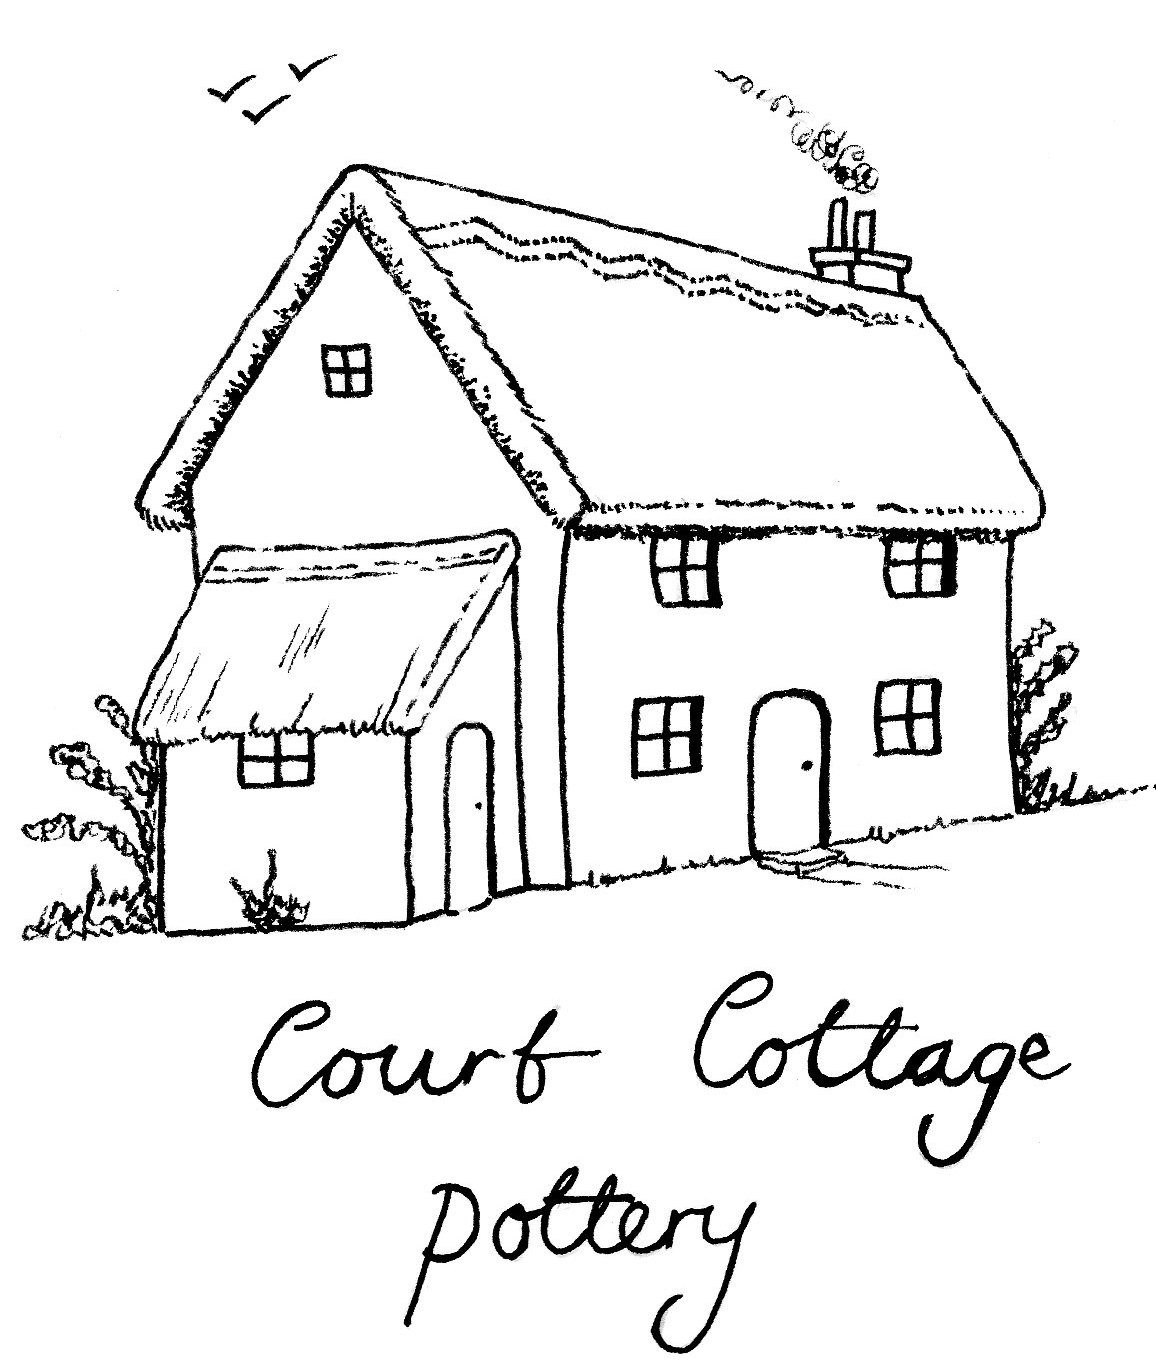 Court Cottage
Pottery